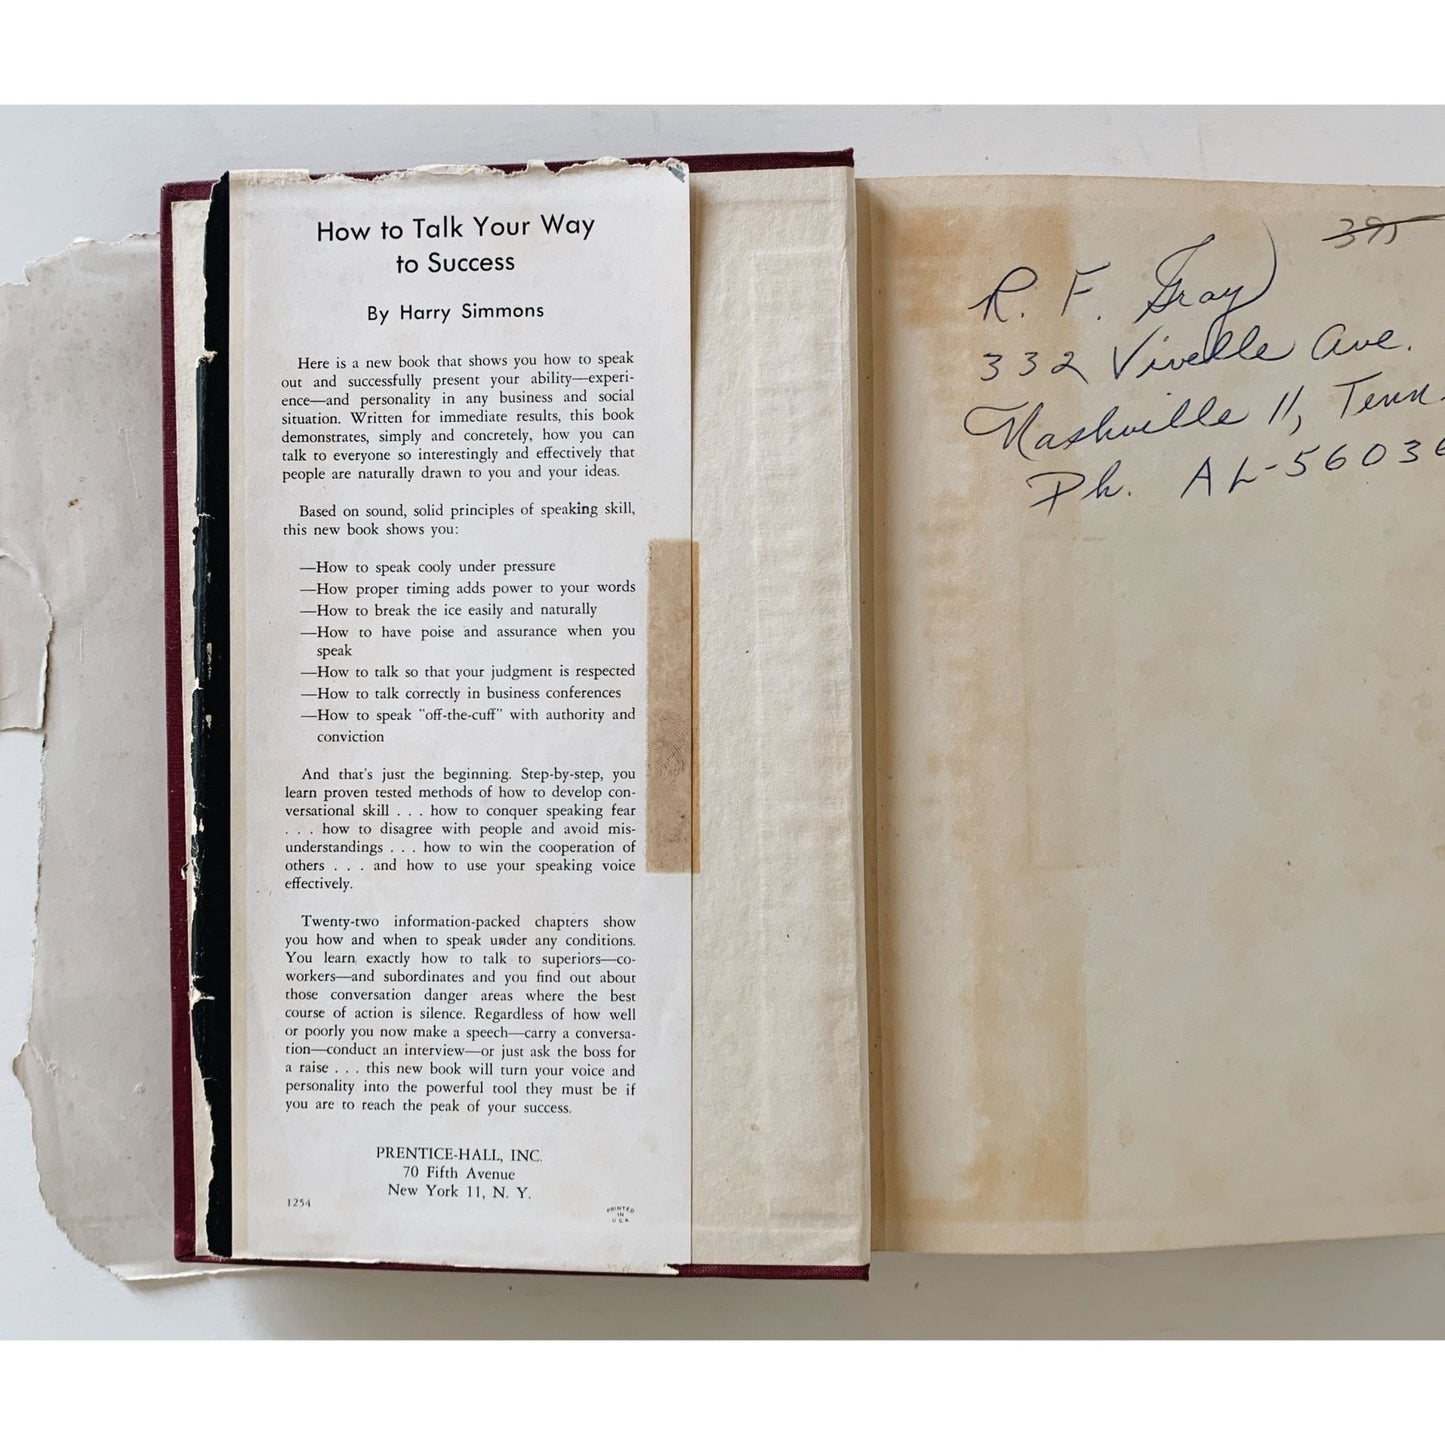 How to Talk Your Way
to Success
By Harry Simmons
Here is a new book that shows you how to speak
out and successfully present your ability—experi-
ence—and personality in any business and social
situation. Written for immediate results, this book
demonstrates, simply and concretely, how you can
talk to everyone so interestingly and effectively that
people are naturally drawn to you and your ideas.
Based on sound, solid principles of speaking skill,
this new book shows you:
—How to speak cooly under pressure
—How proper timing adds power to your words
—How to break the ice easily and naturally
—How to have poise and assurance when you
speak
—How to talk so that your judgment is respected
—How to talk correctly in business conferences
—How to speak "off-the-cuff" with authority and
conviction
And that's just the beginning. Step-by-step, you
learn proven tested methods of how to develop con-
versational skill . . . how to conquer speaking fear
. . . how to disagree with people and avoid mis-
understandings . . . how to win the cooperation of
others . . . and how to use your speaking voice
effectively.
Twenty-two information-packed chapters show
you how and when to speak under any conditions.
You learn exactly how to talk to superiors—co-
workers—and subordinates and you find out about
those conversation danger areas where the best
course of action is silence. Regardless of how well
or poorly you now make a speech—carry a conversa-
tion—conduct an interview—or just ask the boss for
a raise . . . this new book will turn your voice and
personality into the powerful tool they must be if
you are to reach the peak of your success.
PRENTICE-HALL, INC.
70 Fifth Avenue
New York 11, N. Y.
1254
PRINTED
IN
U S A
R. F. Gray
332 Vivelle Ave.
Nashville 11, Tenn.
Ph. AL-56036